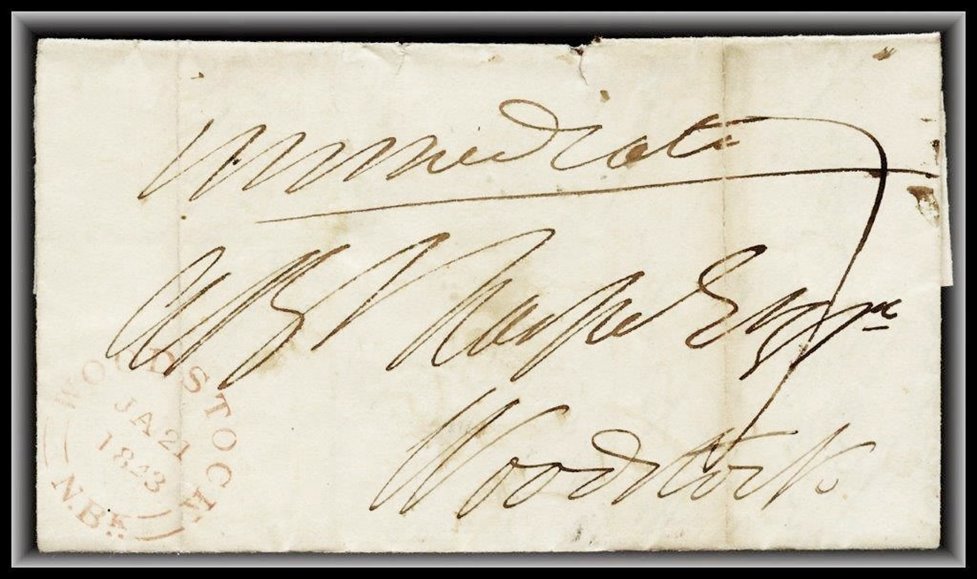 Immediate
A B Sharpe Esqre
Woodstock
WOODSTOCK
JA 21
1843
N.BK.